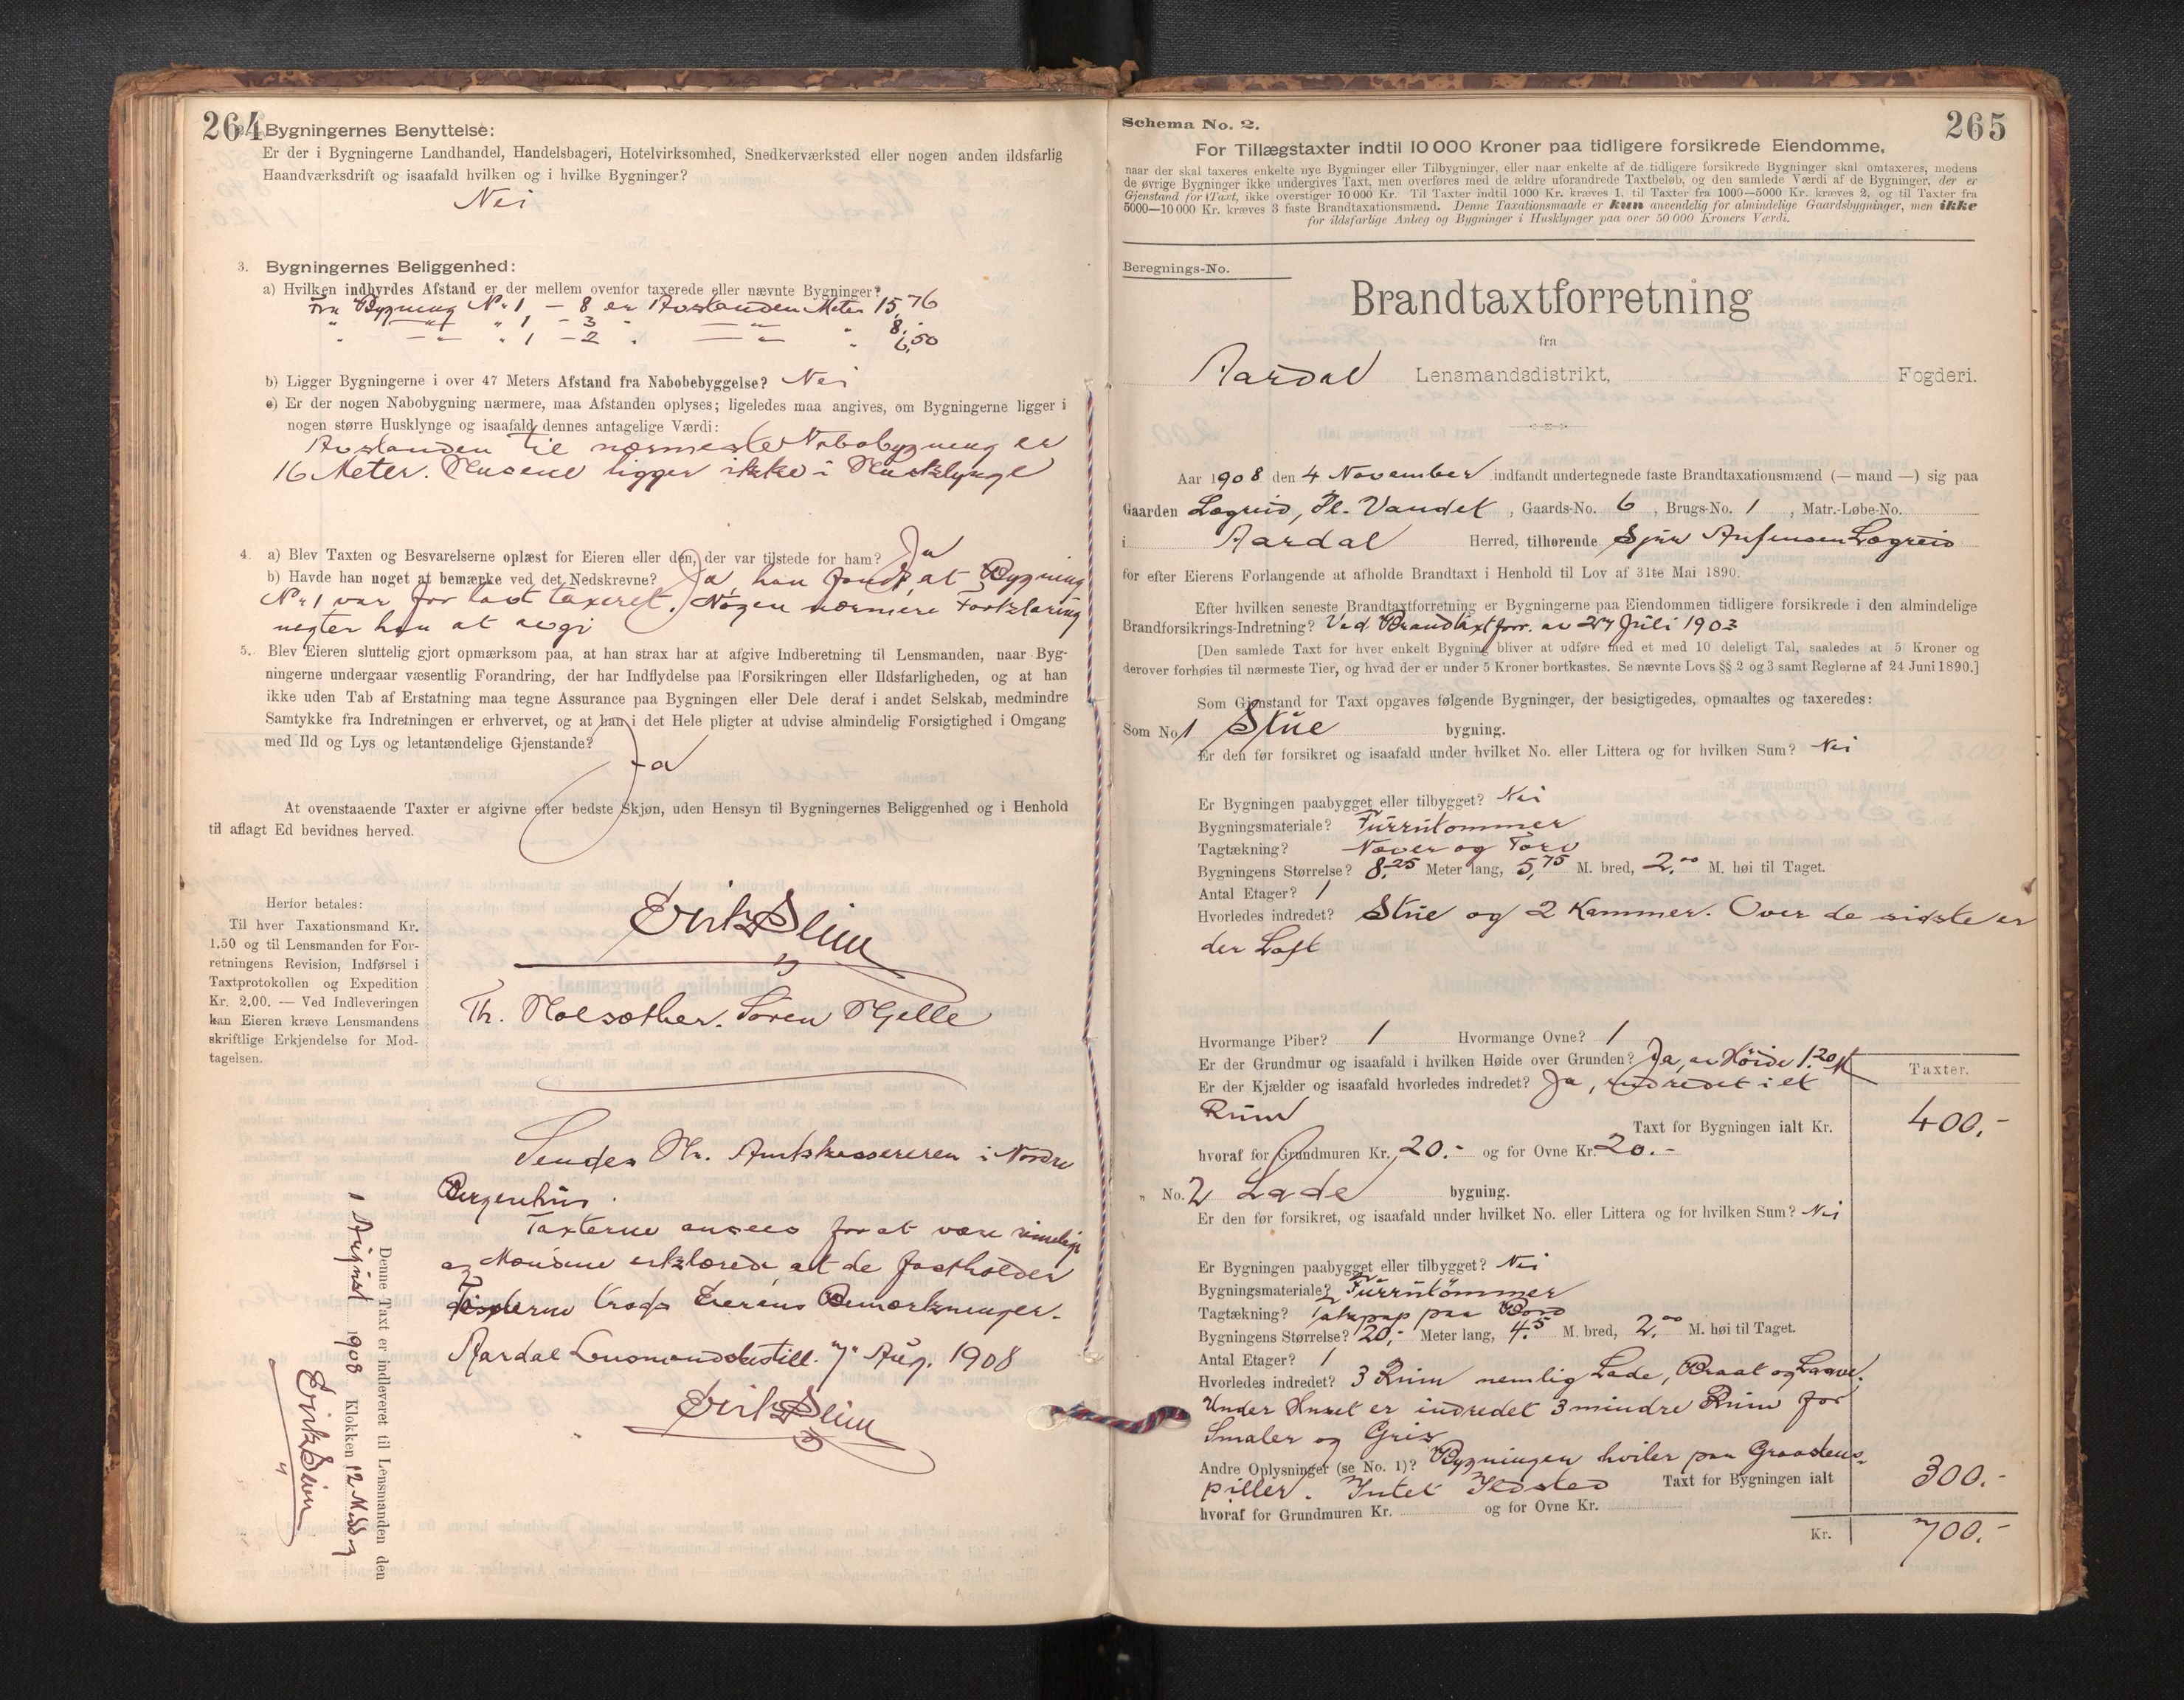 264
Bygningernes Benyttelse:
Er der i Bygningerne Landhandel, Handelsbageri, Hotelvirksomhed, Snedkerværksted eller nogen anden ildsfarlig
Haandværksdrift og isaafald hvilken og i hvilke Bygninger?
Nei
3. Bygningernes Beliggenhed:
a) Hvilken indbyrdes Afstand er der mellem ovenfor taxerede eller nævnte Bygninger?
Fra Bygning No 1 – 8 er Avstanden Meter 15,76
" —"— " 1 – 3 " —"— " 8,-
" —"— " 1 – 2 " —"— " 6,50
b) Ligger Bygningerne i over 47 Meters Afstand fra Nabobebyggelse? Nei
c) Er der nogen Nabobygning nærmere, maa Afstanden oplyses; ligeledes maa angives, om Bygningerne ligger i
nogen større Husklynge og isaafald dennes antagelige Værdi:
Avstanden til nærmeste Nabobygning er
16 Meter. Husene ligger ikke i Husklynge
4. a) Blev Taxten og Besvarelserne oplæst for Eieren eller den, der var tilstede for ham? Ja
b) Havde han noget at bemærke ved det Nedskrevne? Ja, han fandt, at Bygning
No 1 var for lavt taxeret. Nogen nærmere Forklaring
negter han at avgi
5. Blev Eieren sluttelig gjort opmærksom paa, at han strax har at afgive Indberetning til Lensmanden, naar Byg-
ningerne undergaar væsentlig Forandring, der har Indflydelse paa Forsikringen eller Ildsfarligheden, og at han
ikke uden Tab af Erstatning maa tegne Assurance paa Bygningen eller Dele deraf i andet Selskab, medmindre
Samtykke fra Indretningen er erhvervet, og at han i det Hele pligter at udvise almindelig Forsigtighed i Omgang
med Ild og Lys og letantændelige Gjenstande?
Ja
At ovenstaaende Taxter er afgivne efter bedste Skjøn, uden Hensyn til Bygningernes Beliggenhed og i Henhold
til aflagt Ed bevidnes herved.
Herfor betales:
Til hver Taxationsmand Kr.
1.50 og til Lensmanden for For-
retningens Revision, Indførsel i
Taxtprotokollen og Expedition
Kr. 2.00. — Ved Indleveringen
kan Eieren kræve Lensmandens
skriftlige Erkjendelse for Mod-
tagelsen.
Erik Slim
Th. Holsæther. Søren Hjelle
Sendes Hr. Amtskassereren i Nordre
Bergenhus.
Taxterne ansees for at være rimelige
og Mændene erklærede at de fastholder
Taxterne trods Eierens Bemerkninger.
Aardal Lensmandsbestill. 7 Aug. 1908
Erik Slim
Denne Taxt er indleveret til Lensmanden den
August 1908 Klokken 12 Middag
Erik Slim
265
Schema No. 2.
For Tillægstaxter indtil 10 000 Kroner paa tidligere forsikrede Eiendomme,
naar der skal taxeres enkelte nye Bygninger eller Tilbygninger, eller naar enkelte af de tidligere forsikrede Bygninger skal omtaxeres, medens
de øvrige Bygninger ikke undergives Taxt, men overføres med de ældre uforandrede Taxtbeløb, og den samlede Værdi af de Bygninger, der er
Gjenstand for Taxt, ikke overstiger 10 000 Kr. Til Taxter indtil 1000 Kr. kræves 1, til Taxter fra 1000—5000 Kr. kræves 2, og til Taxter fra
5000—10 000 Kr. kræves 3 faste Brandtaxationsmænd. Denne Taxationsmaade er kun anvendelig for almindelige Gaardsbygninger, men ikke
for ildsfarlige Anlæg og Bygninger i Husklynger paa over 50 000 Kroners Værdi.
Beregnings-No.
Brandtaxtforretning
fra
Aardal Lensmandsdistrikt, Fogderi.
Aar 1908 den 4 November indfandt undertegnede faste Brandtaxationsmænd (— mand —) sig paa
Gaarden Lægreid, Pl. Vandet, Gaards-No. 6, Brugs-No. 1, Matr.-Løbe-No.
i Aardal Herred, tilhørende Sjur Anfinsen Lægreid
for efter Eierens Forlangende at afholde Brandtaxt i Henhold til Lov af 31te Mai 1890.
Efter hvilken seneste Brandtaxtforretning er Bygningerne paa Eiendommen tidligere forsikrede i den almindelige
Brandforsikrings-Indretning? Ved Brandtaxtforr. av 27 Juli 1903
[Den samlede Taxt for hver enkelt Bygning bliver at udføre med et med 10 deleligt Tal, saaledes at 5 Kroner og
derover forhøies til nærmeste Tier, og hvad der er under 5 Kroner bortkastes. Se nævnte Lovs §§ 2 og 3 samt Reglerne af 24 Juni 1890.]
Som Gjenstand for Taxt opgaves følgende Bygninger, der besigtigedes, opmaaltes og taxeredes:
Som No. 1 Stue bygning.
Er den før forsikret og isaafald under hvilket No. eller Littera og for hvilken Sum? Nei
Er Bygningen paabygget eller tilbygget? Nei
Bygningsmateriale? Furrutømmer
Tagtækning? Næver og Torv
Bygningens Størrelse? 8,25 Meter lang, 5,75 M. bred, 2,00 M. høi til Taget.
Antal Etager? 1
Hvorledes indredet? Stue og 2 Kammer. Over de sidste er
der Loft
Hvormange Piber? 1 Hvormange Ovne? 1
Er der Grundmur og isaafald i hvilken Høide over Grunden? Ja, av Høide 1.20 M
Er der Kjælder og isaafald hvorledes indredet? Ja, indredet i et
Rum
Taxter.
Taxt for Bygningen ialt Kr. 400.-
hvoraf for Grundmuren Kr. 20.- og for Ovne Kr. 20.-
" No. 2 Lade bygning.
Er den før forsikret, og isaafald under hvilket No. eller Littera og for hvilken Sum? Nei
Er Bygningen paabygget eller tilbygget? Nei
Bygningsmateriale? Furrutømmer
Tagtækning? Takpap paa Bord
Bygningens Størrelse? 20,- Meter lang, 4.5 M. bred, 2,00 M. høi til Taget.
Antal Etager? 1
Hvorledes indredet? 3 Rum nemlig Lade, Braat og Laave.
Under Huset er indredet 3 mindre Rum for
Smaler og Gris
Andre Oplysninger (se No. 1)? Bygningen hviler paa Graastens-
piller. Intet Ildsted Taxt for Bygningen ialt 300.-
hvoraf for Grundmuren Kr. og for Ovne Kr.
Kr. 700.-